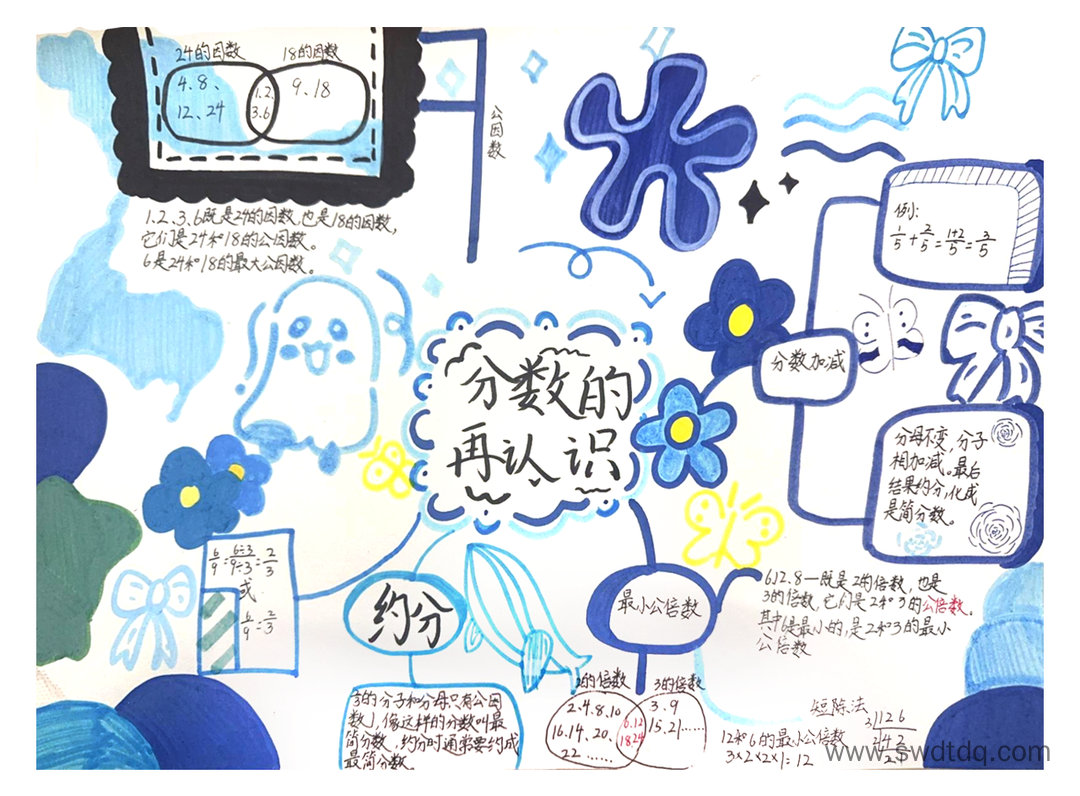 24的因数 18的因数
4.8、
12、24
1.2
3.6
9、18
公因数
1、2、3、6既是24的因数,也是18的因数,
它们是24和18的公因数。
6是24和18的最大公因数。
例:
1/5+2/5=1+2/5=3/5
分数加减
分母不变,分子
相加减。最后
结果约分,化成
是简分数。
分数的
再认识
6/9=6÷3/9÷3=2/3
或
6/9=2/3
约分
的分子和分母只有公因
数1,像这样的分数叫最
简分数,约分时通常要约成
最简分数
最小公倍数
6.12.8一既是2的倍数,也是
3的倍数,它们是2和3的公倍数。
其中6是最小的,是2和3的最小
公倍数
2的倍数 3的倍数
2.4.8.10
16.14.20、
22……
6.12
18.24
3.9
15.21……
短除法
3 12 6
2 4 2
2 1
12和6的最小公倍数
3×2×2×1=12
www.swdtdq.com